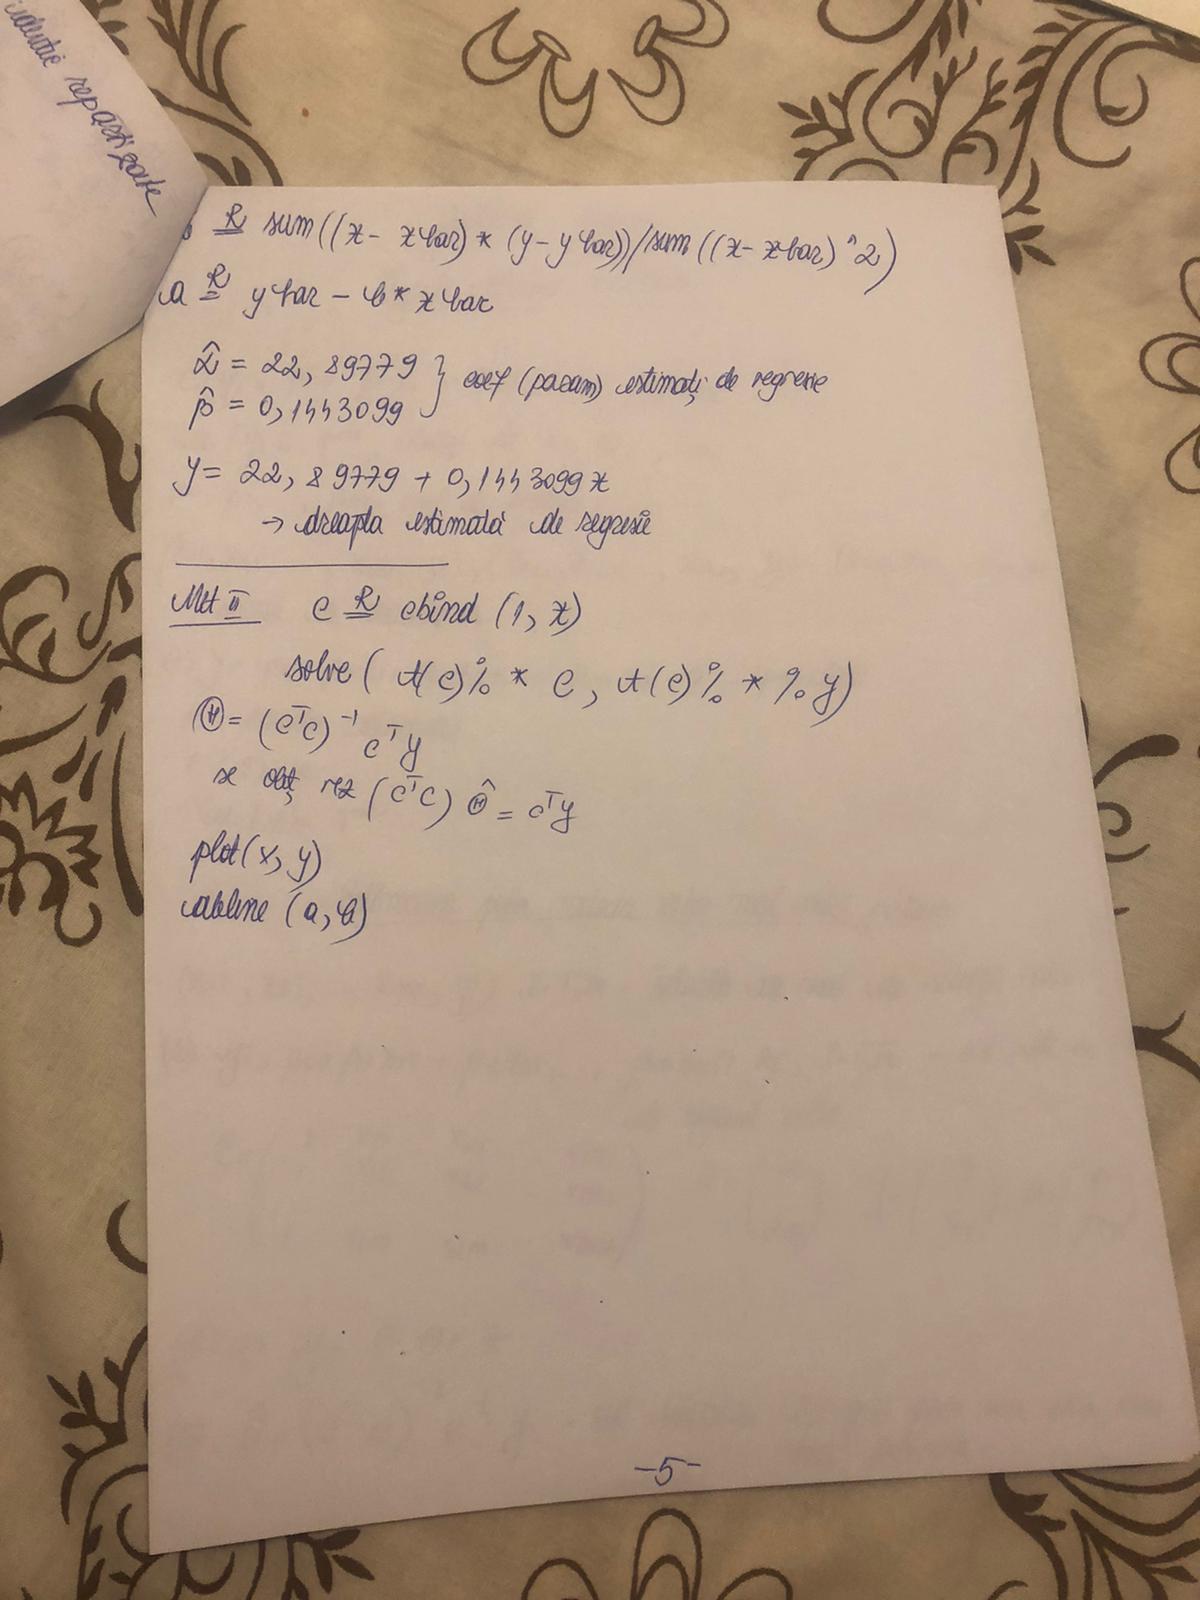 identic repartizate
b R= sum((x - xbar) * (y - ybar))/sum((x - xbar)^2)
a R= ybar - b * xbar
α̂ = 22,89779
β̂ = 0,1443099 } coef (param) estimați de regresie
y = 22,89779 + 0,1443099 x
→ dreapta estimată de regresie
Met II C R= cbind (1, x)
solve ( t(C)% * C, t(C)% * % y)
Ⓗ = (CᵀC)⁻¹ Cᵀy
se obț rez (CᵀC) Ⓗ̂ = Cᵀy
plot(x, y)
abline (a, b)
-5-